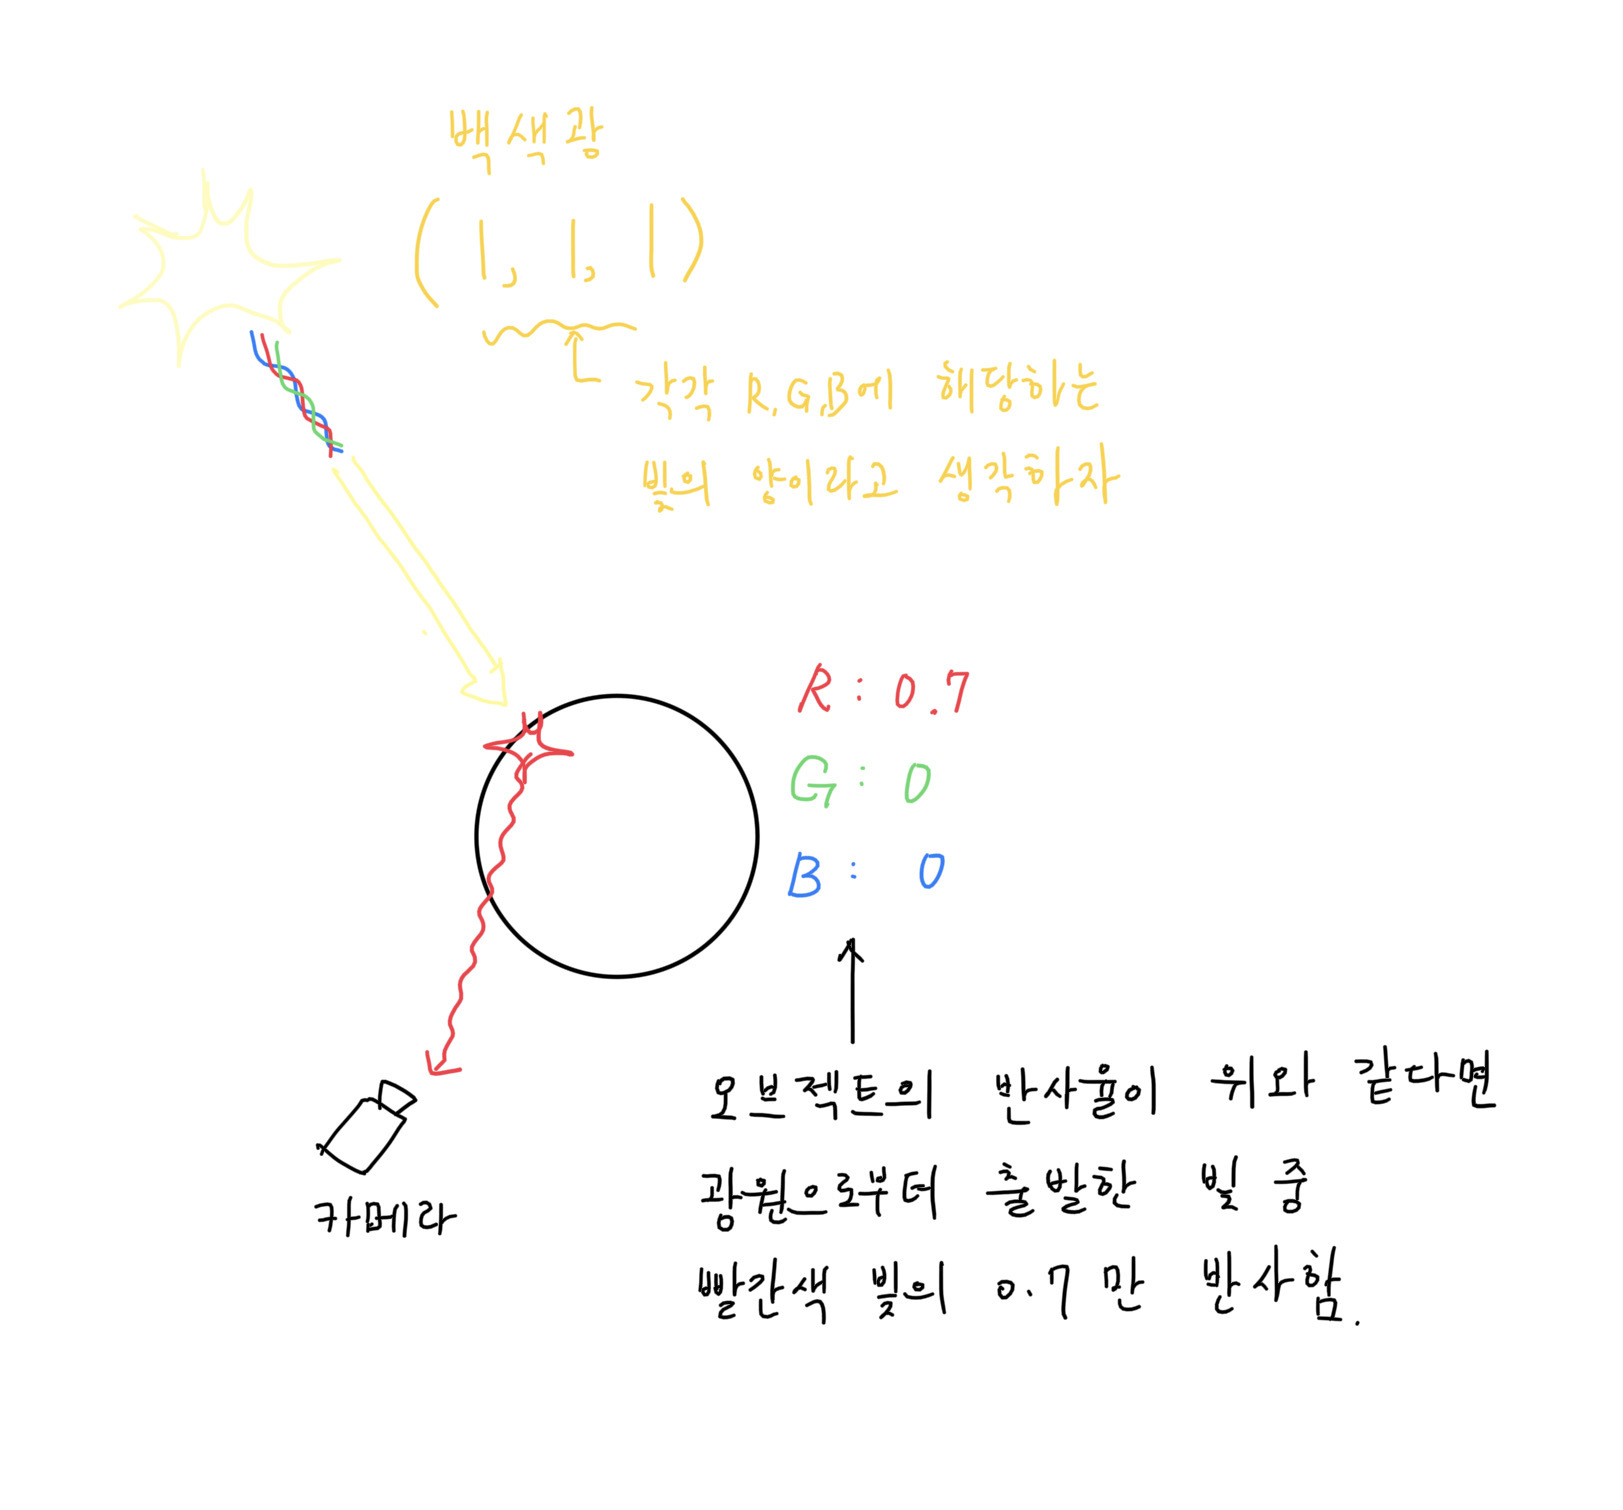 백색광
(1, 1, 1)
각각 R,G,B에 해당하는
빛의 양이라고 생각하자
R : 0.7
G : 0
B : 0
오브젝트의 반사율이 위와 같다면
광원으로부터 출발한 빛 중
빨간색 빛의 0.7만 반사함.
카메라